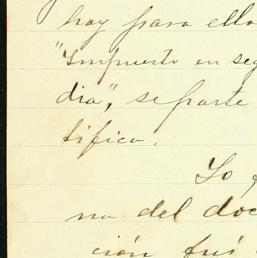 hay para ello
"Impuesto en seg
dia", se parte
tífica.
Lo
na del doc
ción fué